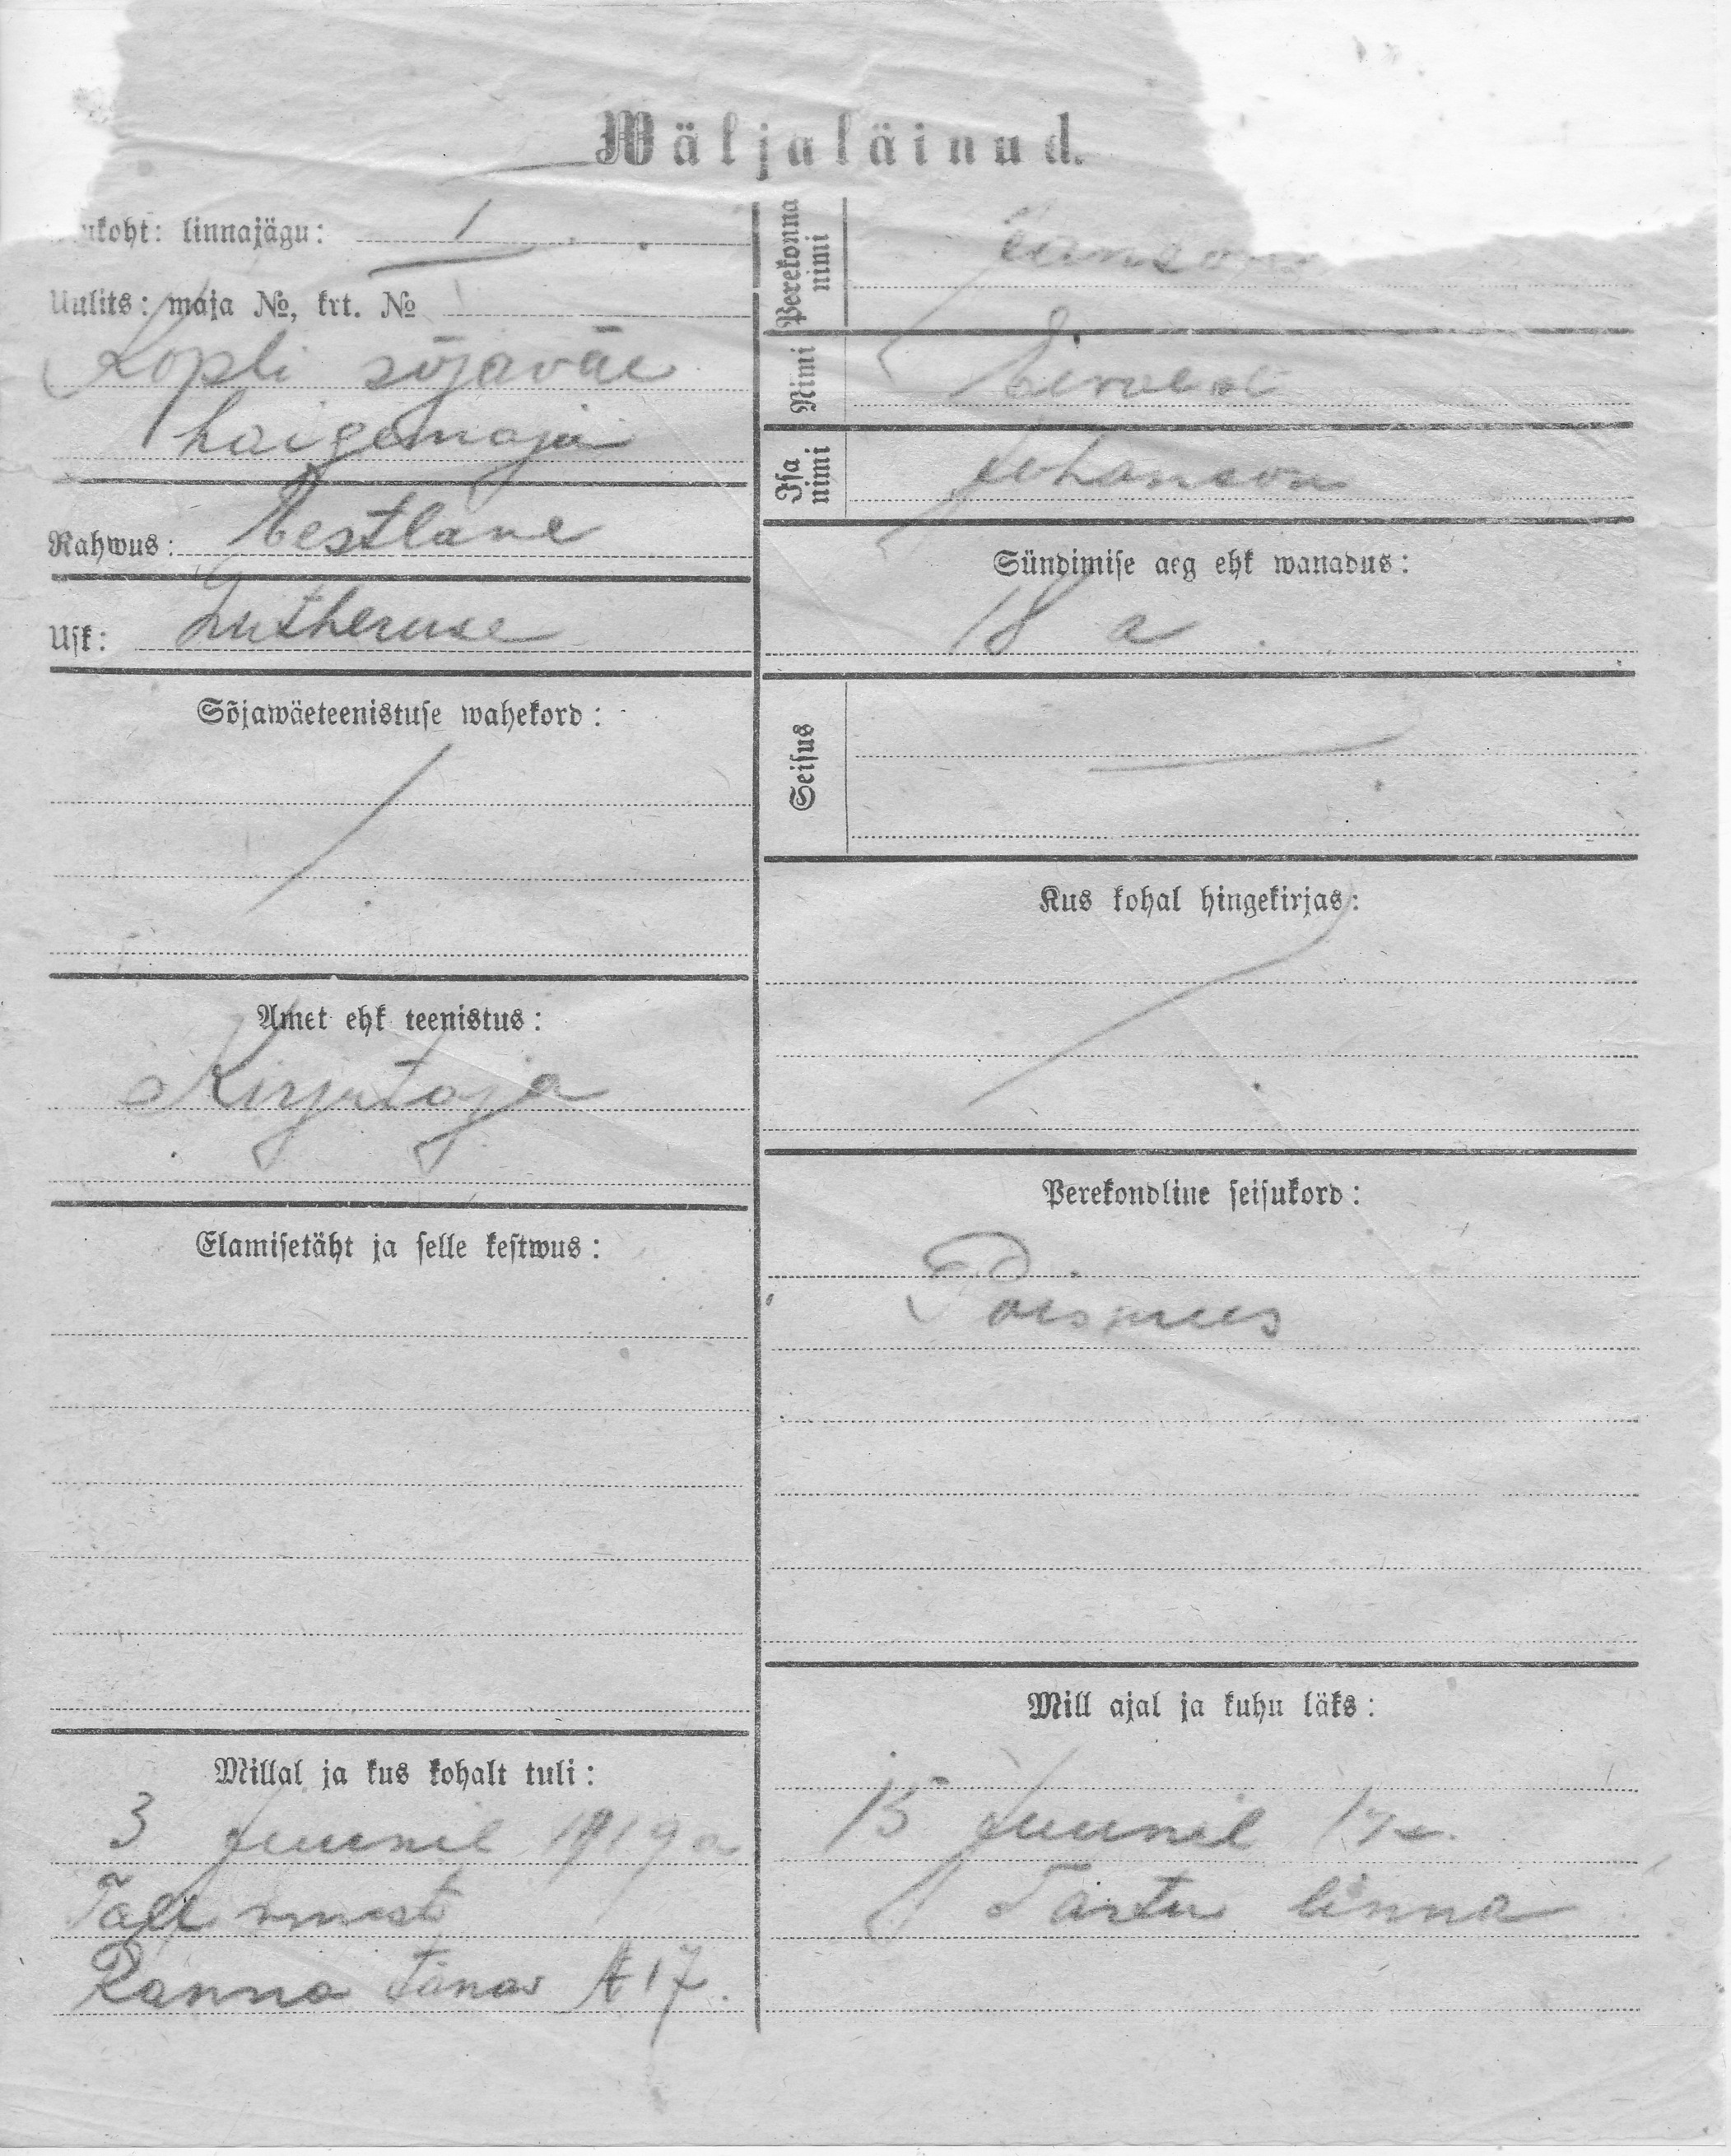 Wäljaläinud.
ukoht: linnajägu: I
Uulits: maja №, krt. №
Kopli sõjaväe
haigemaja
Rahwus: Eestlane
Usk: Lutheruse
Sõjawäeteenistuse wahekord:
Amet ehk teenistus:
Kirjutaja
Elamisetäht ja selle kestwus:
Millal ja kus kohalt tuli:
3 Juunil 1919 a
Ranna tänav № 17.
Perekonna
nimi
Nimi
Isa
nimi
Johanson
Sündimise aeg ehk wanadus:
18 a
Seisus
Kus kohal hingekirjas:
Perekondline seisukord:
Poismees
Mill ajal ja kuhu läks:
15 Juunil
Tartu linna